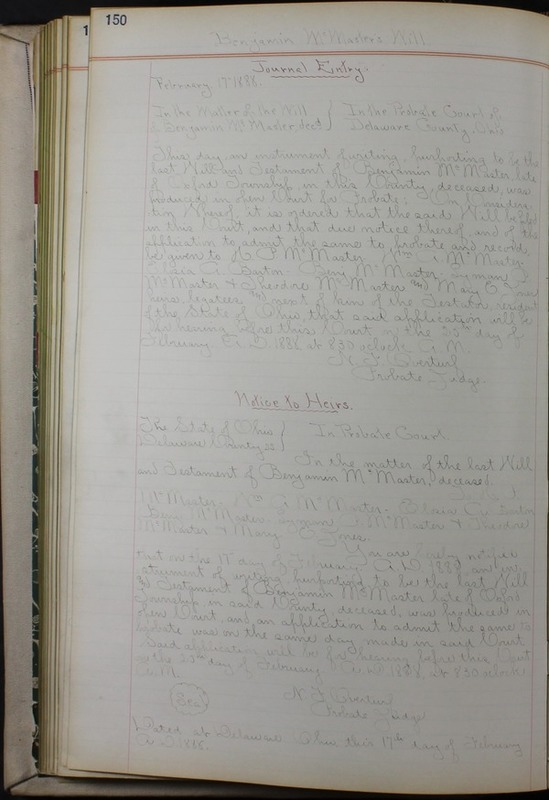 150
Benjamin McMasters Will
Journal Entry.
February 17 1888.
In the Matter of the Will } In the Probate Court of
of Benjamin McMaster, decd } Delaware County, Ohio
This day an instrument of writing, purporting to be the
last Will and Testament of Benjamin McMaster late
of Oxford Township, in this County, deceased, was
produced in open Court for Probate: On Considera-
tion whereof, it is ordered that the said Will be filed
in this Court, and that due notice thereof, and of the
application to admit the same to probate and record,
be given to McMaster McMaster
A. Barton Benj McMaster
McMaster & Theodore McMaster and Mary E
heirs, legatees and next of kin of the Testator, resident
of the State of Ohio, that said application will be
for hearing before this Court on the 20th day of
February A. D. 1888 at 8 30 oclock A. M.
Probate Judge
Notice to Heirs.
The State of Ohio } In Probate Court
Delaware County ss }
In the matter of the last Will
and Testament of Benjamin McMaster, deceased.
McMaster Wm McMaster
Benj. McMaster McMaster & Theodore
McMaster & Mary E
You are hereby notified
that on the 17 day of February A. D. 1888 an in-
strument of writing, purporting to be the last Will
and Testament of Benjamin McMaster late of Oxford
Township, in said County, deceased, was produced in
open Court, and an application to admit the same to
probate was on the same day made in said Court.
Said application will be for hearing before this Court
on the 20th day of February A. D. 1888, at 8 30 oclock
A. M.
Seal
Probate Judge
Dated at Delaware Ohio this 17th day of February
A. D. 1888.